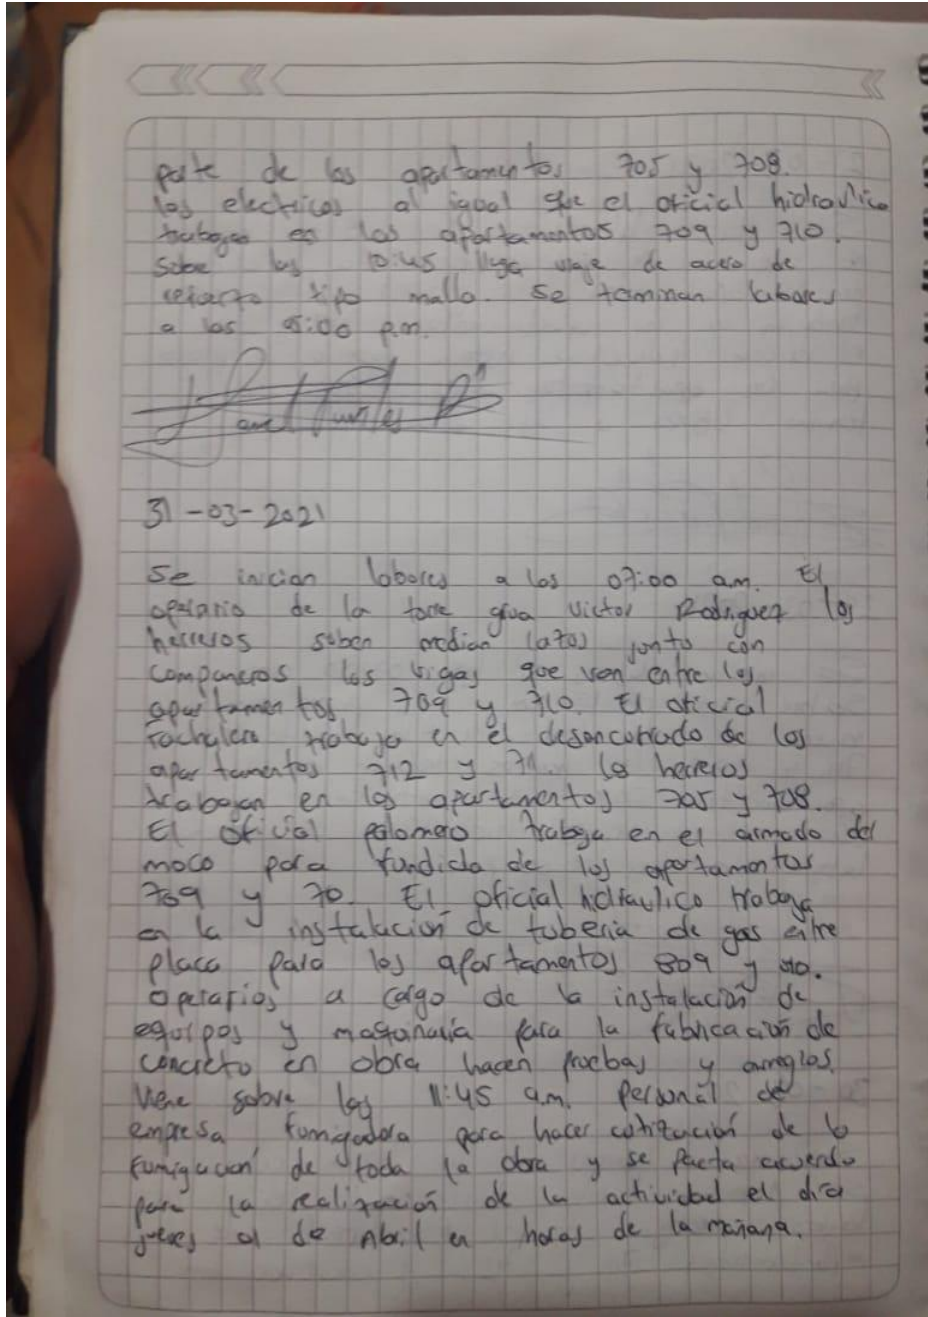 parte de los apartamentos 705 y 708.
los electricos al igual que el oficial hidraulico
trabajan en los apartamentos 709 y 710.
Sobre las 10:45 llega viaje de acero de
refuerzo tipo malla. Se terminan labores
a las 05:00 p.m.
31-03-2021
Se inician labores a las 07:00 a.m. El
operario de la torre grua Victor Rodriguez los
herreros suben median lazos junto con
companeros las vigas que van entre los
apartamentos 709 y 710. El oficial
trabaja en el desencofrado de los
apartamentos 712 y 71. los herreros
trabajan en los apartamentos 705 y 708.
El oficial palomero trabaja en el armado del
moco para fundida de los apartamentos
709 y 70. El oficial hidraulico trabaja
en la instalación de tuberia de gas entre
placa para los apartamentos 809 y
Operarios a cargo de la instalación de
equipos y maquinaria para la fabricación de
concreto en obra hacen pruebas y arreglos.
Viene sobre las 11:45 a.m. Personal de
empresa fumigadora para hacer cotización de la
fumigación de toda la obra y se pacta acuerdo
para la realización de la actividad el día
jueves 01 de Abril en horas de la mañana.